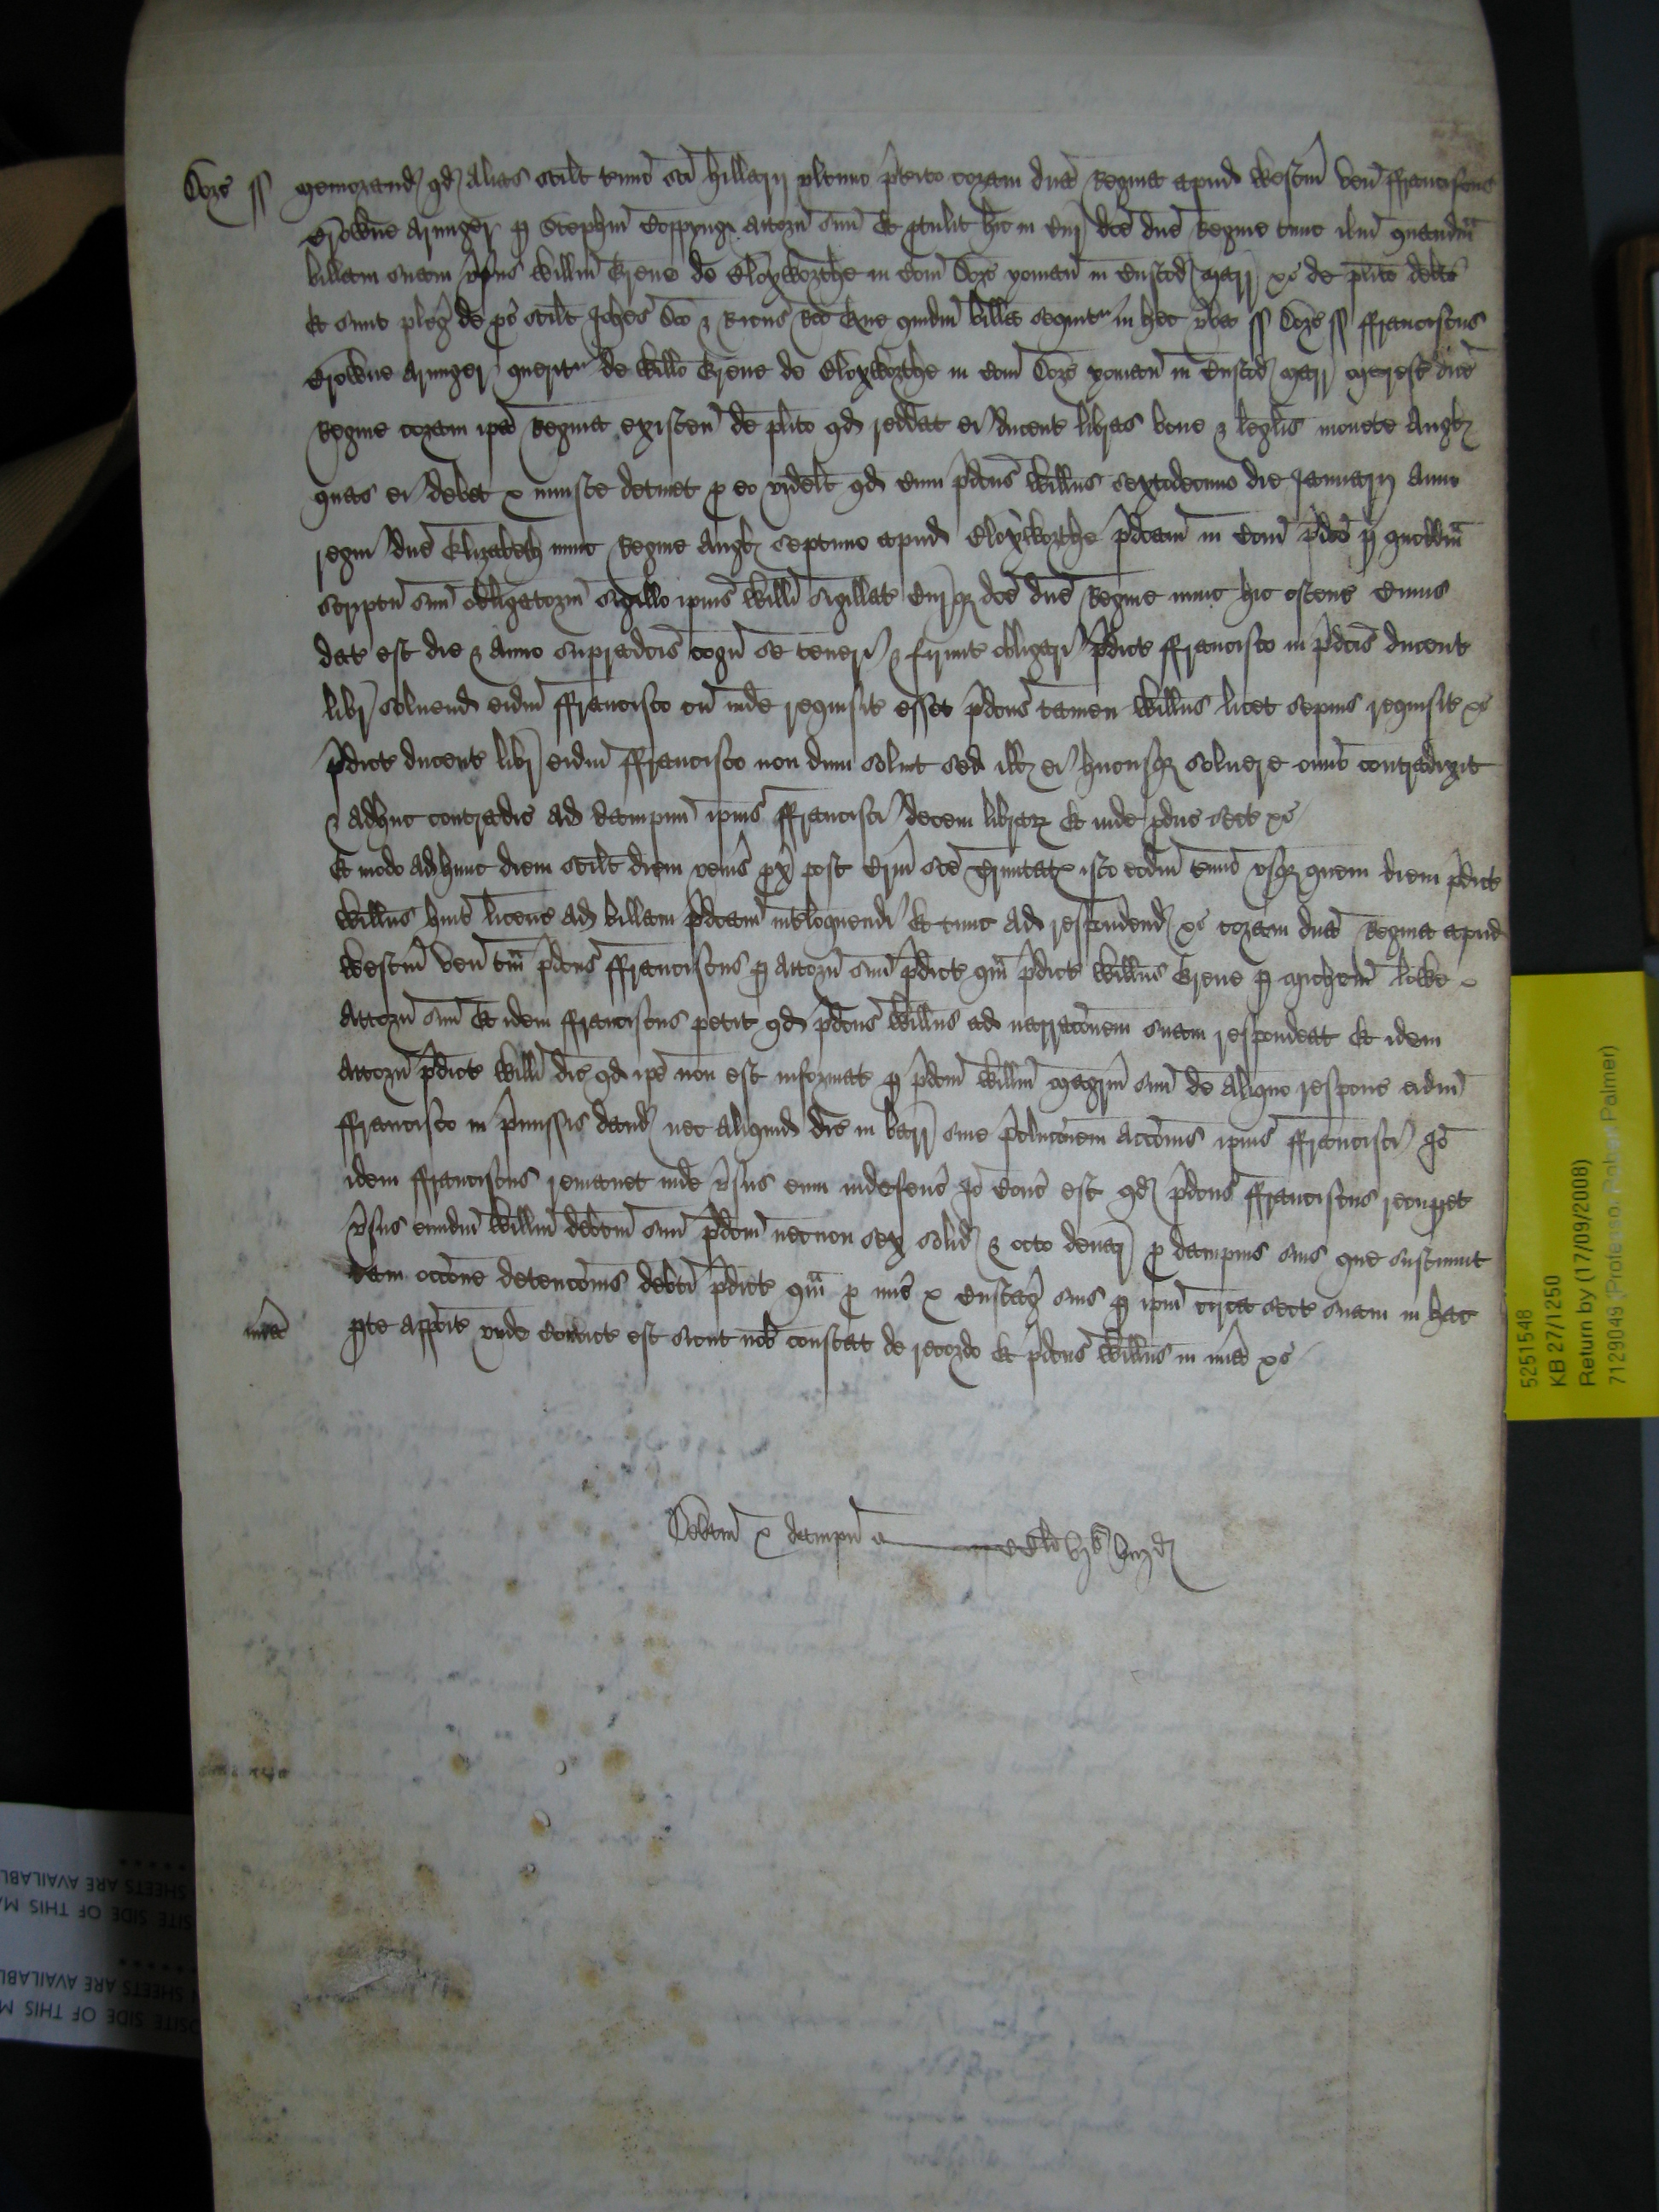 Dors ss Memorand qd alias scilt tmino sci Hillarii ultimo pterito coram dna Regina apud Westm ven Franciscus
Browne Armiger p Stephm Toppyng attorn suu Et ptulit hic in Cur dce dne Regine tunc ibm quandam
billam suam vsus Willm Grene de Bloxworthe in Com Dors yoman in Custod Marr &c de plito debti
Et sunt pleg de ps scilt Johes Doo & Ricus Roo Que quidm billa sequitr in hec vba ss Dors ss Franciscus
Browne Armiger queritr de Willo Grene de Bloxworthe in Com Dors yoman in Custod Marr Maresc dne
Regine coram ipa Regina existen de plito qd reddat ei ducent libras bone & legalis monete Angl
quas ei debet & iniuste detinet p eo videlt qd cum pdcus Willus sextodecimo die Januarij anno
regni dne Elizabeth nunc Regine Angl septimo apud Bloxworthe pdcam in Com pdco p quoddm
scriptu suu obligatoriu sigillo ipius Willi sigillat Curieq dce dne Regine nunc hic ostens cuius
dat est die & anno supradcis cogn se teneri & firmit obligari pdict Francisco in pdcis ducent
libr solvend eidm Francisco cu inde requisit esset pdcus tamen Willus licet sepius requisit &c
pdict ducent libr eidm Francisco non dum solvit sed ill ei hucusq solvere omino contradixit
& adhuc contradic ad dampnu ipius Francisci decem librar Et inde pduc sect &c
Et modo ad hunc diem scilt diem venis px post Crm sce Trinitat isto eodm tmino usq quem diem pdict
Willus huit licenc ad billam pdcam intloquendi Et tunc ad respondend &c coram dna Regina apud
Westm ven tam pdcus Franciscus p attorn suu pdict qm pdict Willus Grene p Michem Lowe
attorn suu Et idem Franciscus petit qd pdcus Willus ad narracoem suam respondeat Et idem
attorn pdict Willi dic qd ipe non est informat p pdcm Willm magrm suu de aliquo respons eidm
Francisco in pmissis dand nec aliquid dic in barr sive pclucoem accois ipius Francisci p qd
idem Franciscus remanet inde vsus eum indefens Io Cons est qd pdcus Franciscus recupet
vsus eundm Willm debitm suu pdcm necnon sex solid & octo denar p dampnis suis que sustinuit
tam occone detencois debti pdict qm p mis & Custag suis p ipm circa sect suam in hac
mia pte appoit unde Convict est sicut nob constat de recordo Et pdcus Willus in mia &c
Debitm & dampn a CCli vjs viijd
5251548
KB 27/1250
Return by (17/09/2008)
7129049 (Professor Robert Palmer)
SHEETS ARE AVAILABL
SITE SIDE OF THIS MA
SHEETS ARE AVAILABL
OSITE SIDE OF THIS M